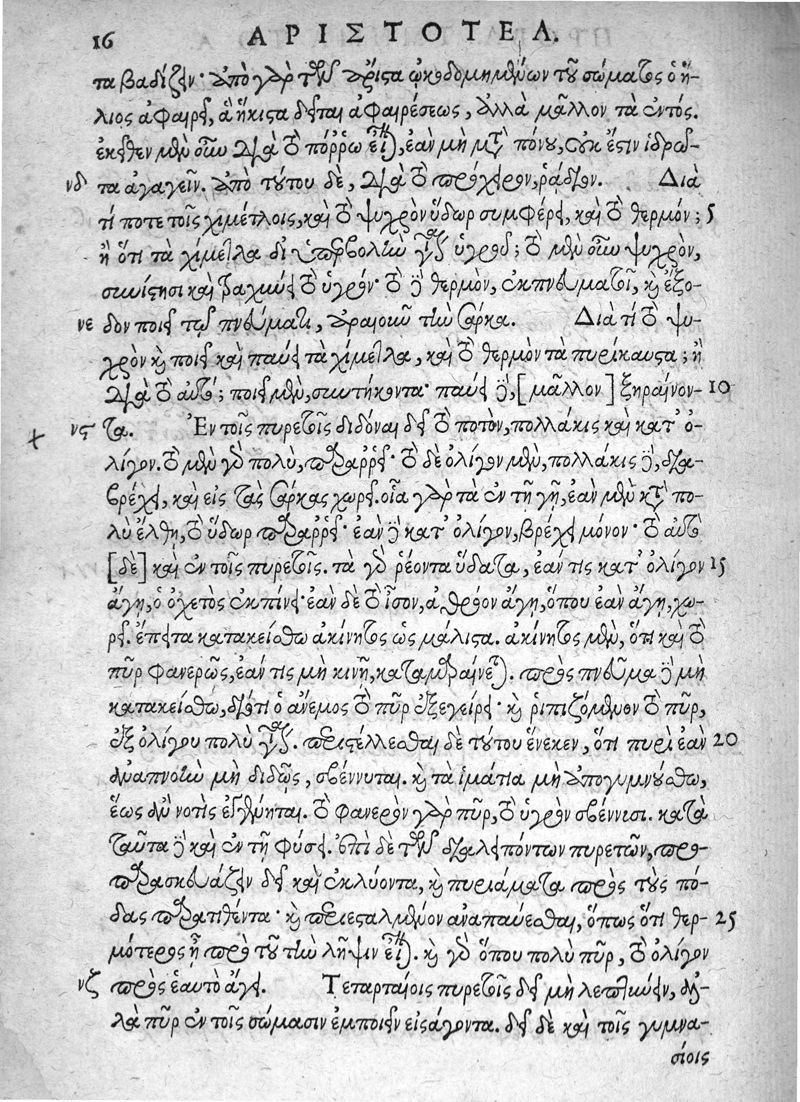 16 ΑΡΙΣΤΟΤΕΛ.
τα βαδίζειν· ἀπὸ γὰρ τῶν ἄριστα ᾠκοδομημένων τοῦ σώματος ὁ ἥ-
λιος ἀφαιρεῖ, ἃ ἥκιστα δεῖται ἀφαιρέσεως, ἀλλὰ μᾶλλον τὰ ἐντός.
ἐκεῖθεν μὲν οὖν διὰ τὸ πόῤῥω εἶναι, ἐὰν μὴ μετὰ πόνου, οὐκ ἔστιν ἱδρῶ-
νδ τα ἀγαγεῖν. ἀπὸ τούτου δὲ, διὰ τὸ πρόχειρον, ῥάδιον. Διὰ
τί ποτε τοῖς χιμέτλοις, καὶ τὸ ψυχρὸν ὕδωρ συμφέρει, καὶ τὸ θερμόν; 5
ἢ ὅτι τὰ χίμετλα δι' ὑπερβολὴν γίνεται ὑγροῦ; τὸ μὲν οὖν ψυχρὸν,
συνίστησι καὶ τραχύνει τὸ ὑγρόν· τὸ δὲ θερμὸν, ἐκπνευματοῖ, καὶ ἔξο-
νε δον ποιεῖ τῷ πνεύματι, ἀραιοῦν τὴν σάρκα. Διὰ τί τὸ ψυ-
χρὸν καὶ ποιεῖ καὶ παύει τὰ χίμετλα, καὶ τὸ θερμὸν τὰ πυρίκαυστα; ἢ
διὰ τὸ αὐτό; ποιεῖ μὲν, συντήκοντα· παύει δὲ, [μᾶλλον] ξηραίνον- 10
νϛ τα. Ἐν τοῖς πυρετοῖς διδόναι δεῖ τὸ ποτὸν, πολλάκις καὶ κατ' ὀ-
λίγον. τὸ μὲν γὰρ πολὺ, παραῤῥεῖ· τὸ δὲ ὀλίγον μὲν, πολλάκις δὲ, δια-
βρέχει, καὶ εἰς τὰς σάρκας χωρεῖ. οἷα γὰρ τὰ ἐν τῇ γῇ, ἐὰν μὲν κατὰ πο-
λὺ ἔλθῃ, τὸ ὕδωρ παραῤῥεῖ· ἐὰν δὲ κατ' ὀλίγον, βρέχει μόνον· τὸ αὐτὸ
[δὲ] καὶ ἐν τοῖς πυρετοῖς. τὰ γὰρ ῥέοντα ὕδατα, ἐάν τις κατ' ὀλίγον 15
ἄγῃ, ὁ ὀχετὸς ἐκπίνει· ἐὰν δὲ τὸ ἶσον, ἀθρόον ἄγῃ, ὅπου ἐὰν ἄγῃ, χω-
ρεῖ. ἔπειτα κατακείσθω ἀκίνητος ὡς μάλιστα. ἀκίνητος μὲν, ὅτι καὶ τὸ
πῦρ φανερῶς, ἐάν τις μὴ κινῇ, καταμαραίνεται. πρὸς πνεῦμα δὲ μὴ
κατακείσθω, διότι ὁ ἄνεμος τὸ πῦρ ἐξεγείρει· καὶ ῥιπιζόμενον τὸ πῦρ,
ἐξ ὀλίγου πολὺ γίνεται. περιστέλλεσθαι δὲ τούτου ἕνεκεν, ὅτι πυρὶ ἐὰν 20
ἀναπνοὴν μὴ διδῷς, σβέννυται. καὶ τὰ ἱμάτια μὴ ἀπογυμνούσθω,
ἕως ἂν νοτὶς ἐγγένηται. τὸ φανερὸν γὰρ πῦρ, τὸ ὑγρὸν σβέννισι. κατὰ
ταῦτα δὲ καὶ ἐν τῇ φύσει. ἐπὶ δὲ τῶν διαλειπόντων πυρετῶν, προ-
παρασκευάζειν δεῖ καὶ ἐκλύοντα, καὶ πυριάματα πρὸς τοὺς πό-
δας παρατιθέντα· καὶ περιεσταλμένον ἀναπαύεσθαι, ὅπως ὅτι θερ- 25
μότερος ᾖ πρὸ τοῦ τὴν λῆψιν εἶναι. καὶ γὰρ ὅπου πολὺ πῦρ, τὸ ὀλίγον
νζ πρὸς ἑαυτὸ ἄγει. Τεταρταίοις πυρετοῖς δεῖ μὴ λεπτύνειν, ἀλ-
λὰ πῦρ ἐν τοῖς σώμασιν ἐμποιεῖν εἰσάγοντα. δεῖ δὲ καὶ τοῖς γυμνα-
σίοις